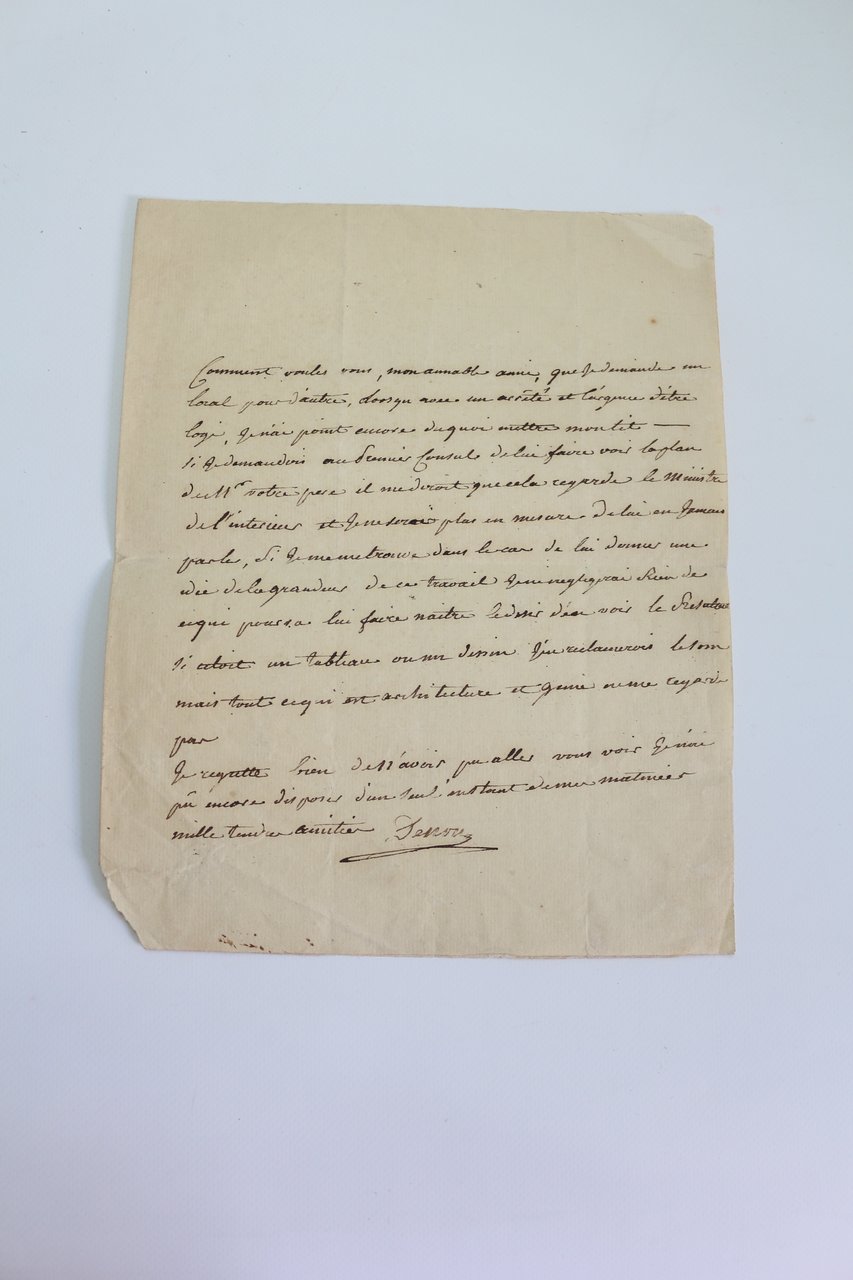 Comment voulés vous, mon aimable amie, que je demande un
local pour d'autre, lorsqu avec un arrêté et l'urgence d'être
logé, je n'ai point encore de quoi mettre mon lit —
Si je demandois au Premier Consul de lui faire voir le plan
de Mr votre pere il me diroit que cela regarde le Ministre
de l'interieur et je ne serai plus en mesure de lui en jamais
parler, Si je me me trouve dans le cas de lui donner une
idée de la grandeur de ce travail je ne negligerai Rien de
ce qui poura lui faire naître le desir d'en voir le Resultat
si cetoit un tableau ou un dessin j'en reclamerois le soin
mais tout ce qui est architecture et genie ne me regarde
pas
Je regrette bien de N'avoir pu aller vous voir je n'ai
pû encore disposer d'un seul instant de mes matinées
mille tendre amitiés Denon